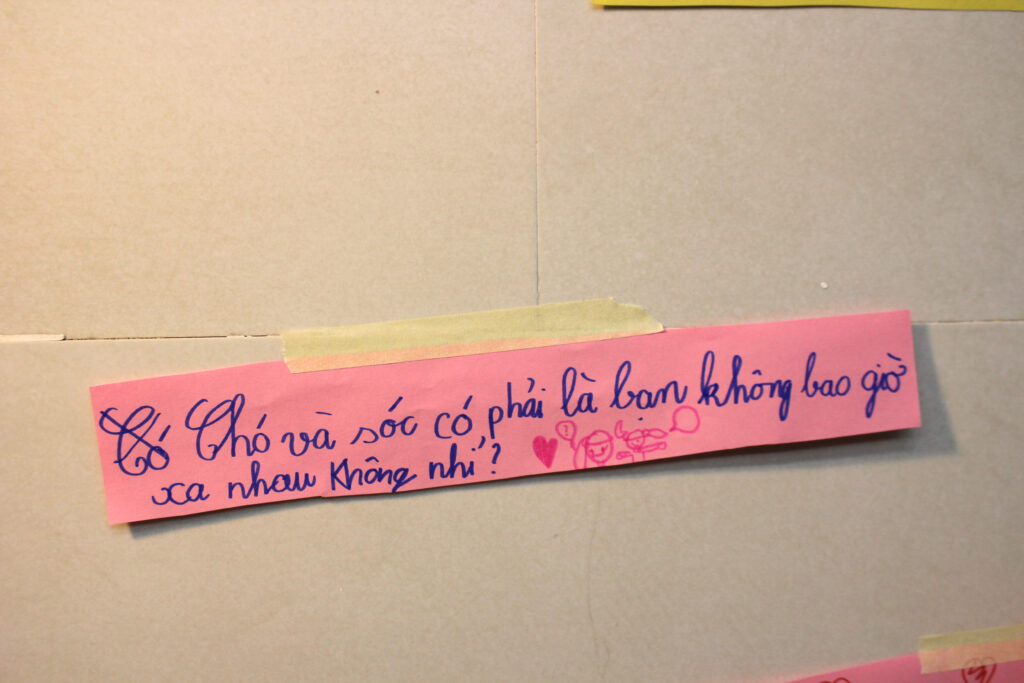 Chó và sóc có phải là bạn không bao giờ
xa nhau không nhỉ?
?